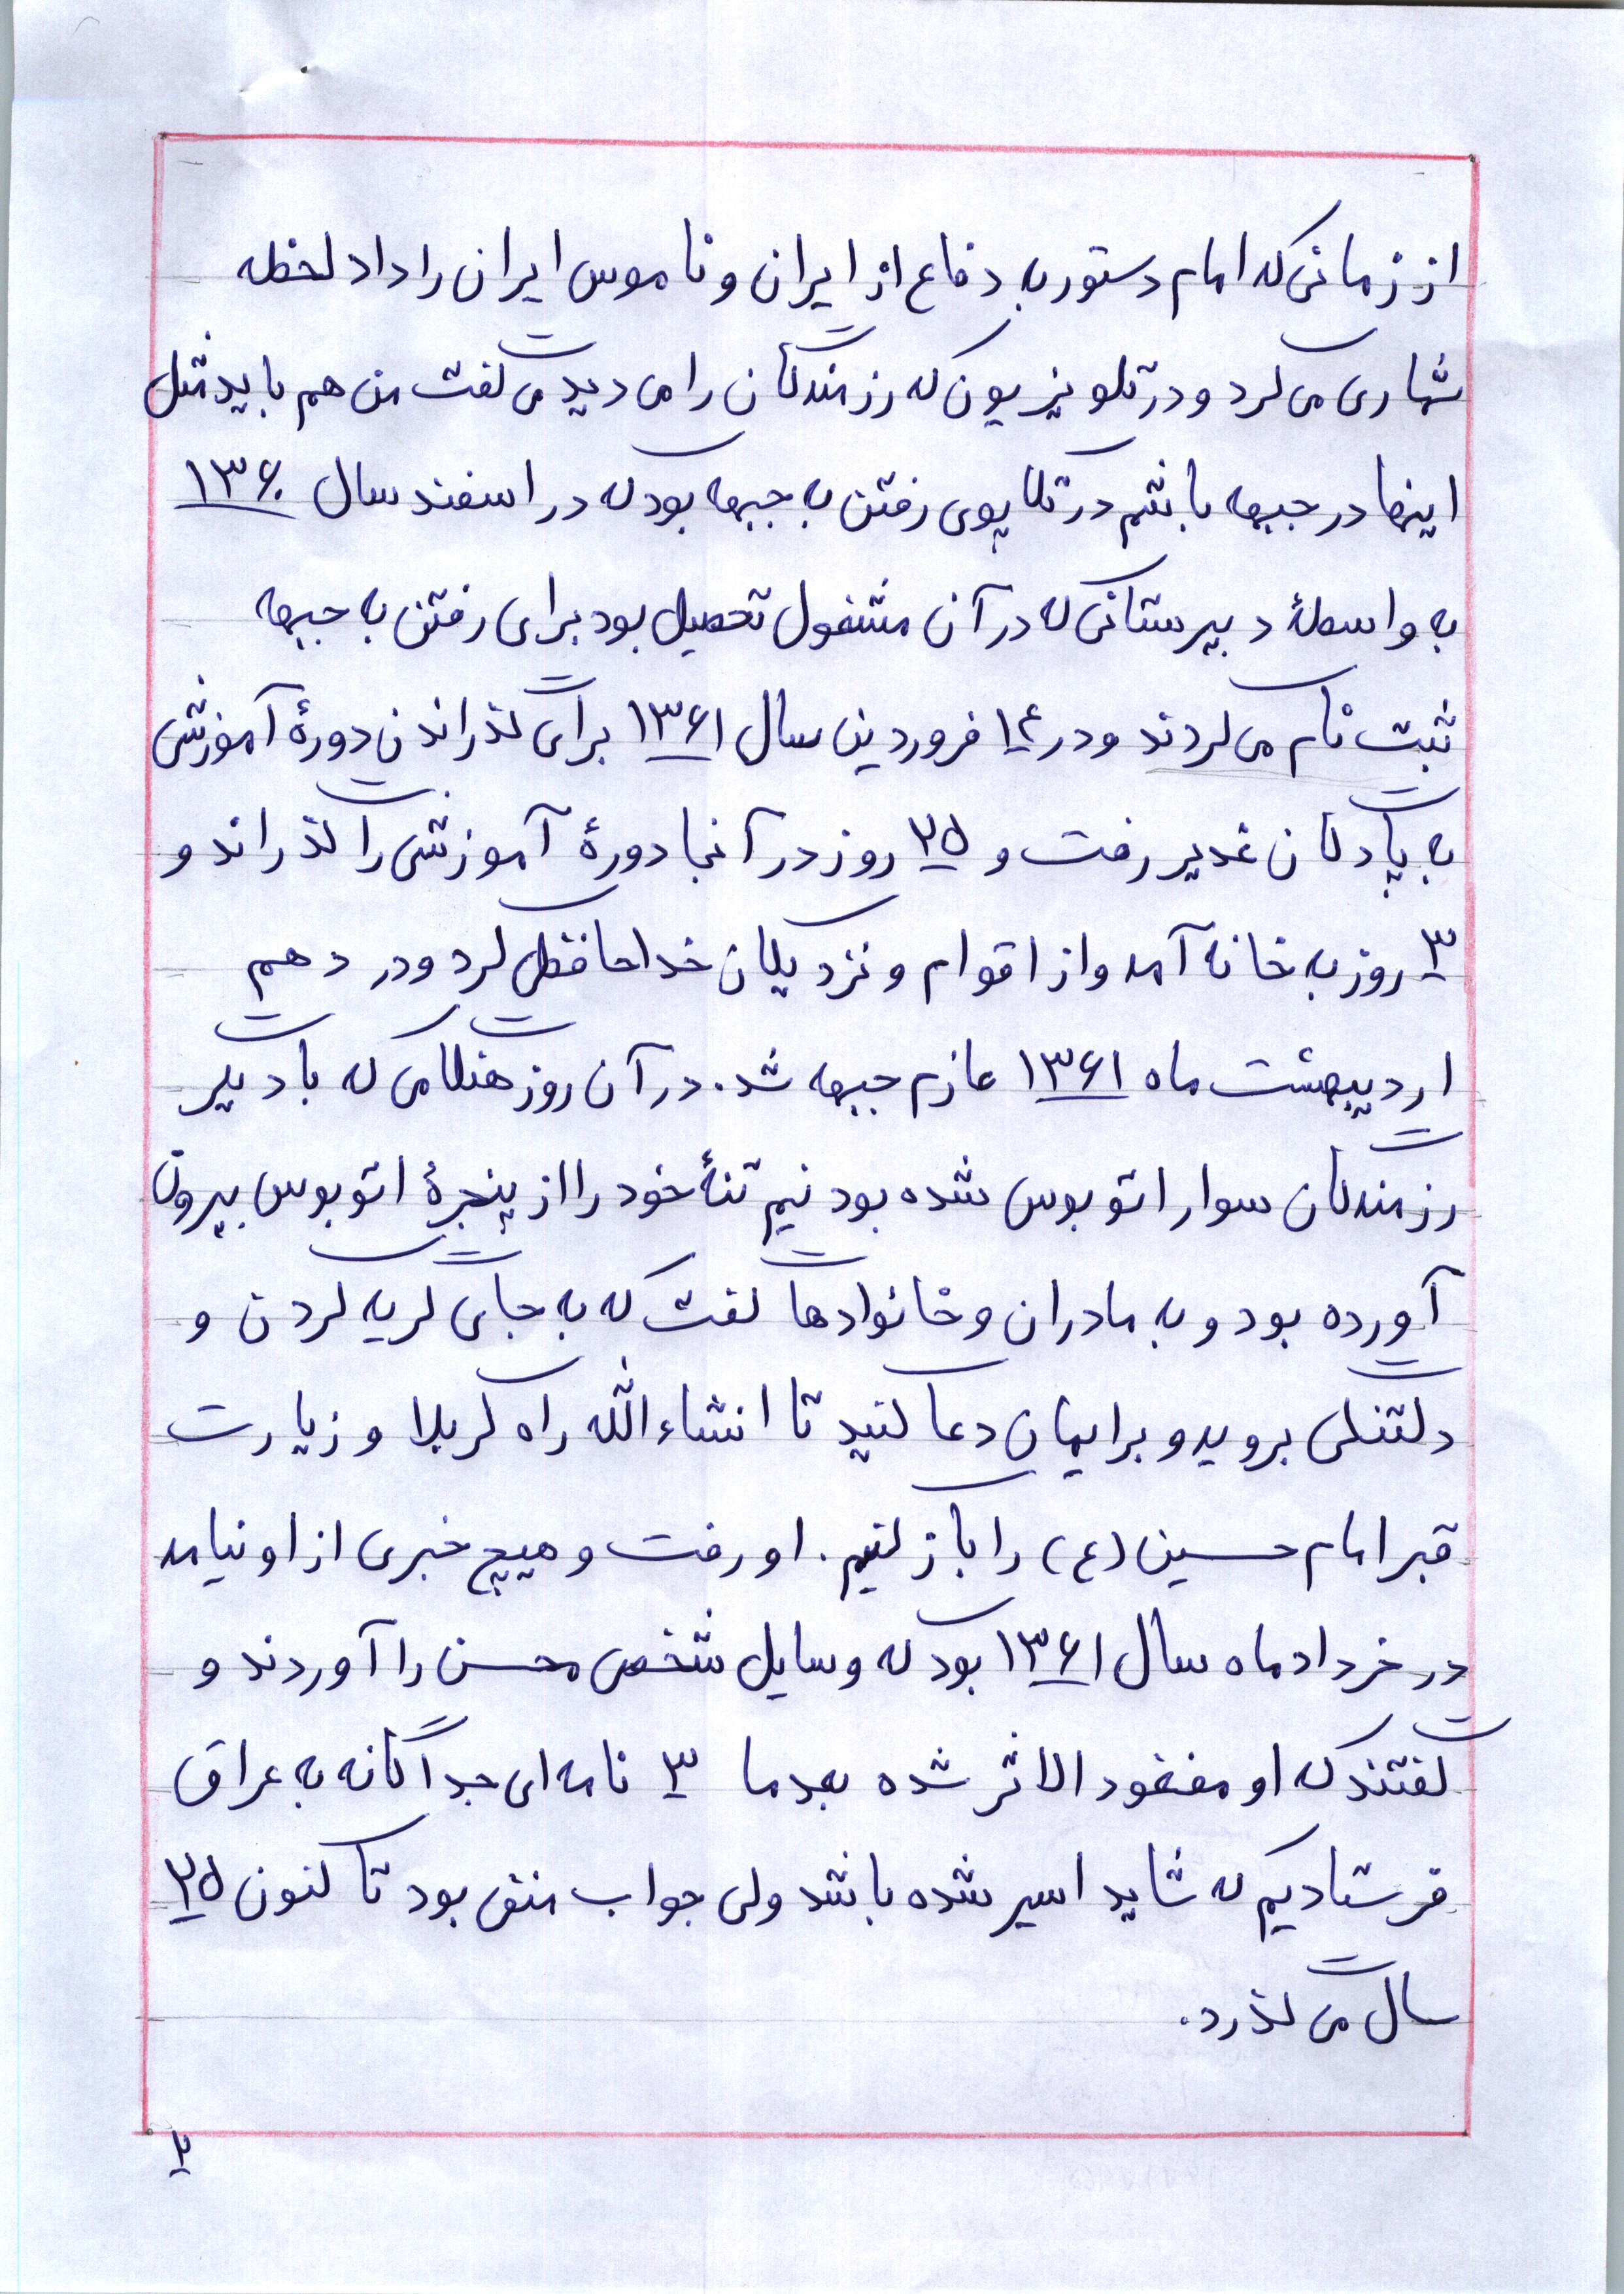 از زمانی که امام دستور به دفاع از ایران و ناموس ایران را داد لحظه
شماری می کرد و در تلویزیون که رزمندگان را می دید می گفت من هم باید مثل
اینها در جبهه باشم در تکاپوی رفتن به جبهه بود که در اسفند سال ۱۳۶۰
به واسطهٔ دبیرستانی که در آن مشغول تحصیل بود برای رفتن به جبهه
ثبت نام می کردند و در ۱۴ فروردین سال ۱۳۶۱ برای گذراندن دورهٔ آموزشی
به پادگان غدیر رفت و ۲۵ روز در آنجا دورهٔ آموزشی را گذراند و
۳ روز به خانه آمد و از اقوام و نزدیکان خداحافظی کرد و در دهم
اردیبهشت ماه ۱۳۶۱ عازم جبهه شد. در آن روز هنگامی که با دیگر
رزمندگان سوار اتوبوس شده بود نیم تنهٔ خود را از پنجرهٔ اتوبوس بیرون
آورده بود و به مادران و خانوادها گفت که به جای گریه کردن و
دلتنگی بروید و برایمان دعا کنید تا انشاءالله راه کربلا و زیارت
قبر امام حسین (ع) را باز کنیم. او رفت و هیچ خبری از او نیامد
در خرداد ماه سال ۱۳۶۱ بود که وسایل شخصی محسن را آوردند و
گفتند که او مفقود الاثر شده بعد ما ۳ نامه ای جداگانه به عراق
فرستادیم که شاید اسیر شده باشد ولی جواب منفی بود تا کنون ۲۵
سال می گذرد.
۲